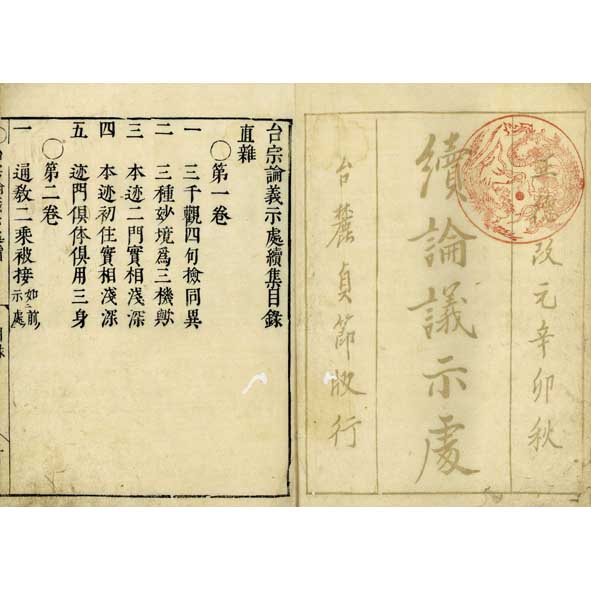 正德改元辛卯秋
續論議示處
台麓貞節版行
台宗論義示處續集目錄
直雜
○第一卷
一 三千觀四句檢同異
二 三種妙境爲三機歟
三 本迹二門實相淺深
四 本迹初住實相淺深
五 迹門俱体俱用三身
○第二卷
一 通教二乘被接 如前示處